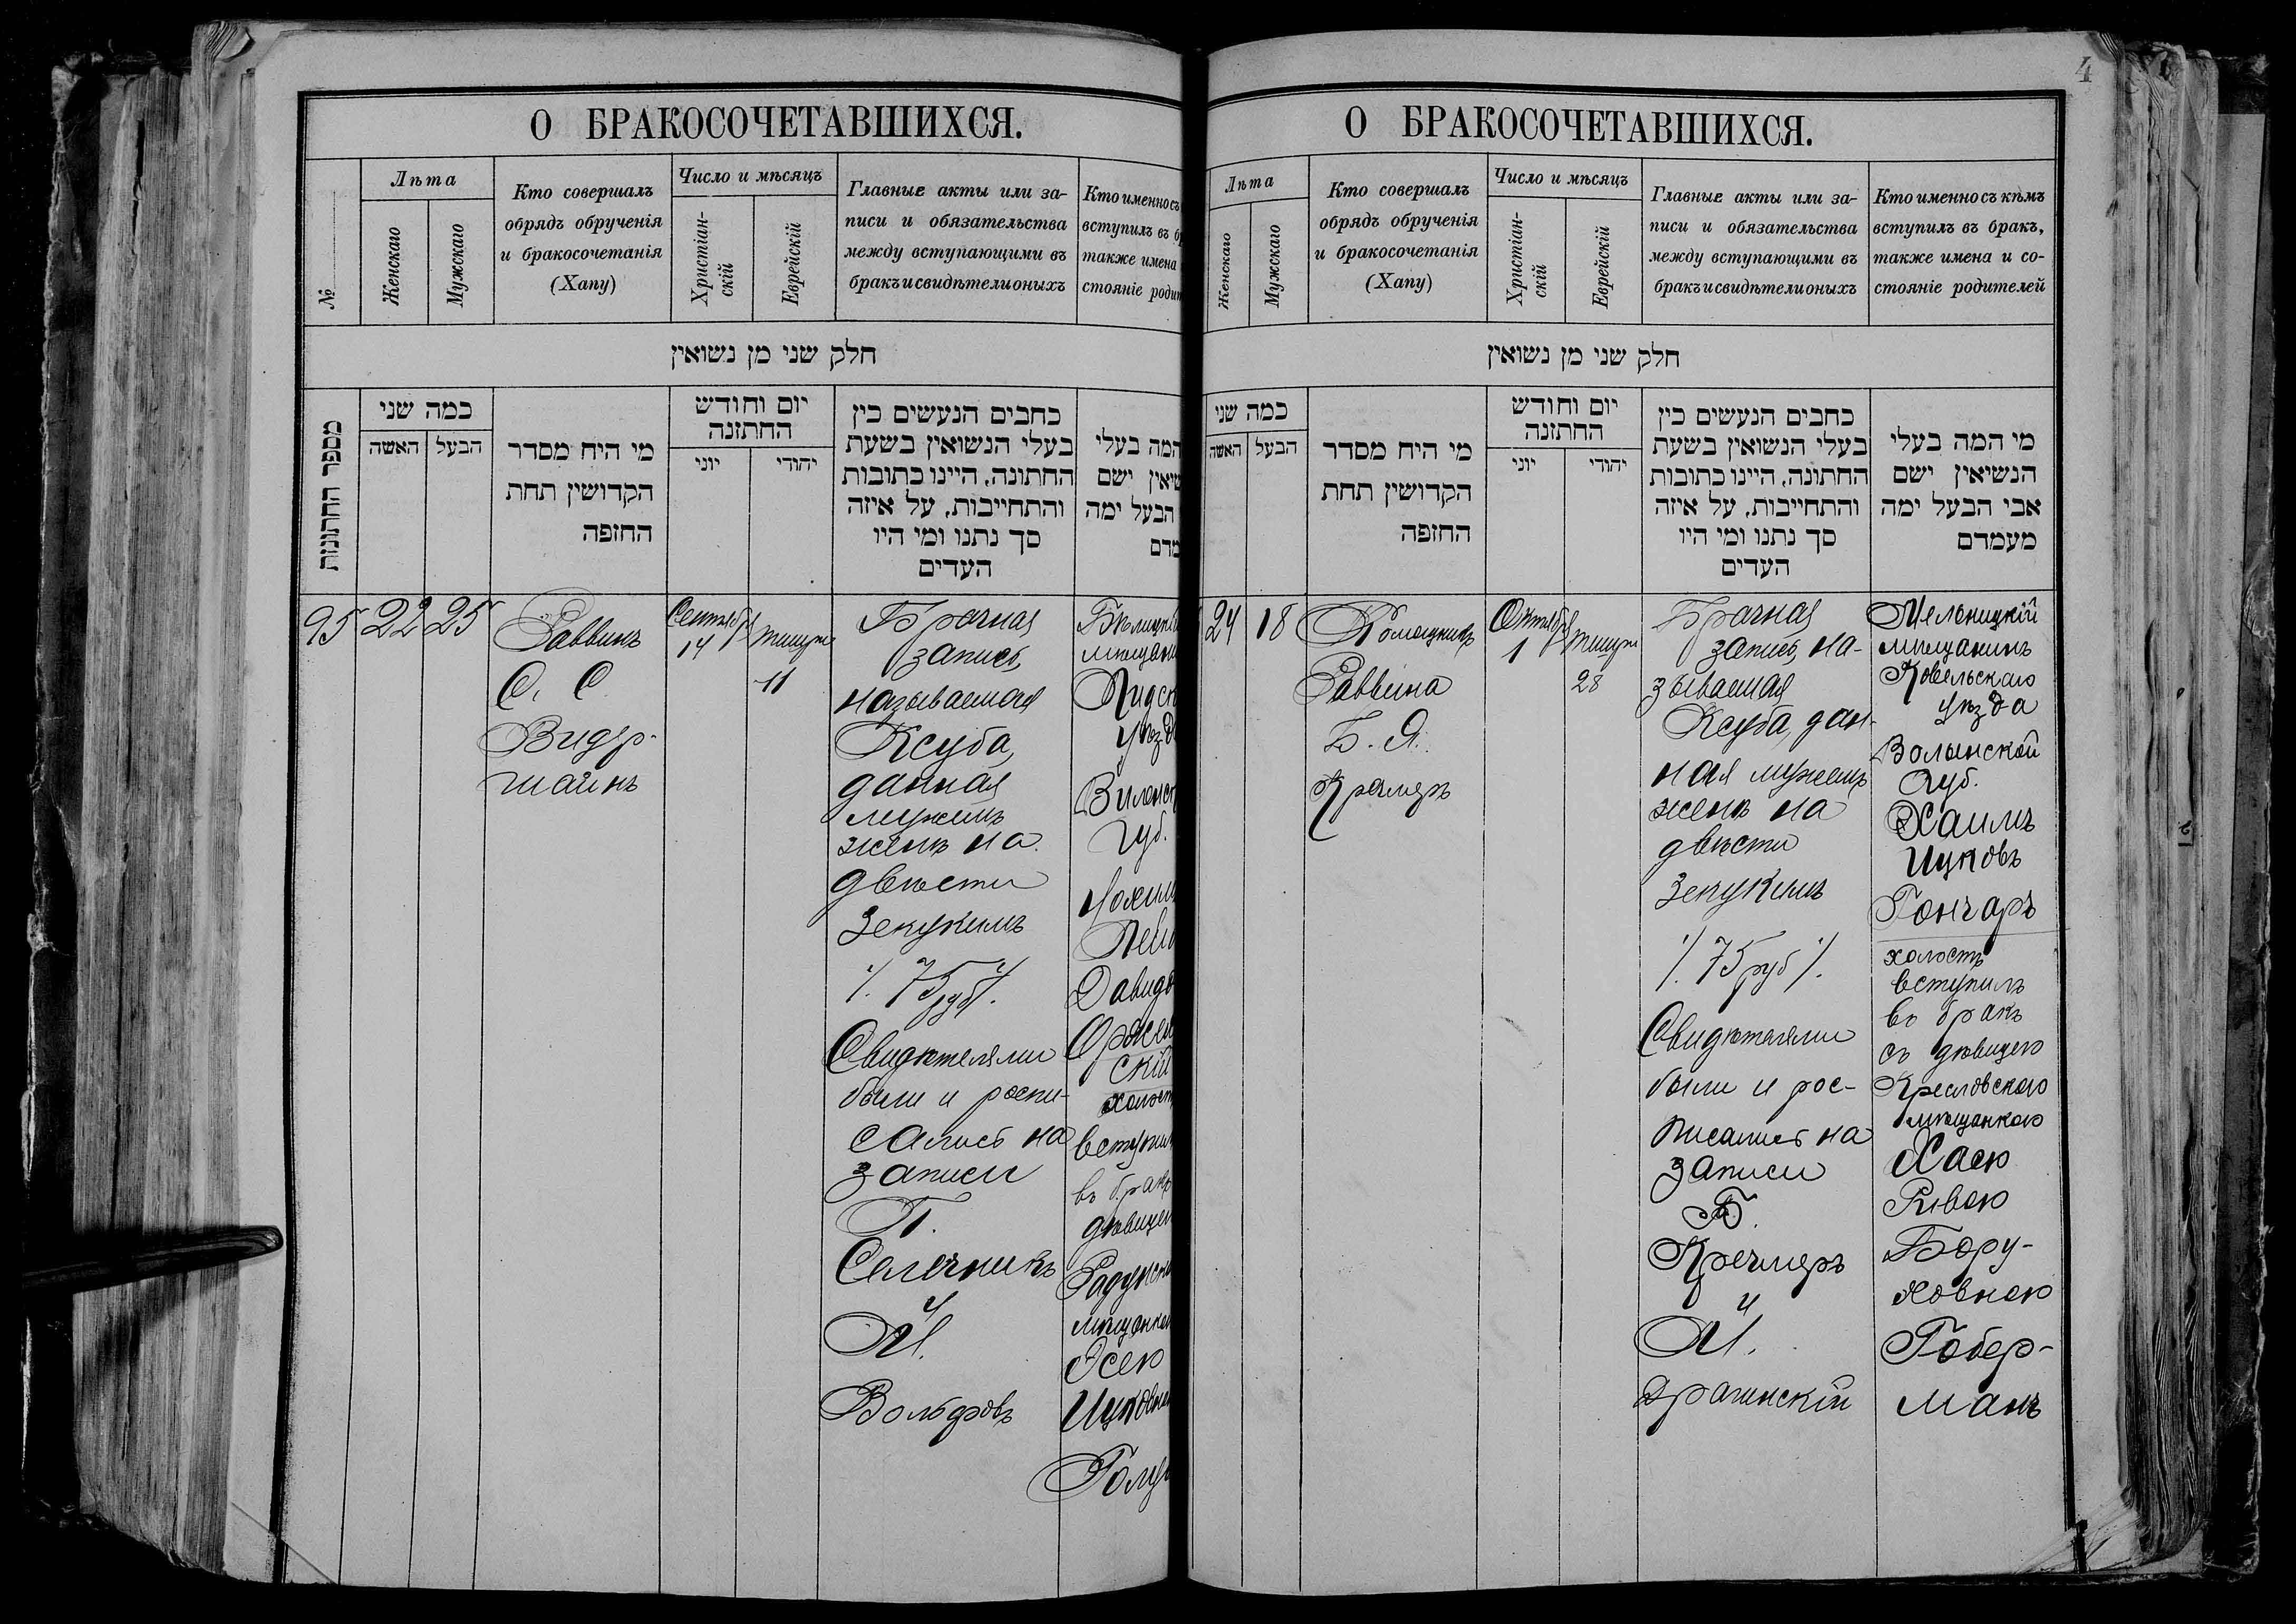 О БРАКОСОЧЕТАВШИХСЯ.
№
Лѣта
Женскаго
Мужскаго
Кто совершалъ
обрядъ обрученія
и бракосочетанія
(Хапу)
Число и мѣсяцъ
Христіан-
скій
Еврейскій
Главные акты или за-
писи и обязательства
между вступающими въ
бракъ и свидѣтели оныхъ
Кто именно съ
вступилъ въ
также имена
стояніе
חלק שני מן נשואין
מספר החתונות
כמה שני
האשה
הבעל
מי היח מסדר
הקדושין תחת
החזפה
יום וחודש
החתזנה
יוני
יהודי
כחבים הנעשים כין
בעלי הנשואין בשעת
החתונה, היינו כתובות
והתחייבות, על איזה
סך נתנו ומי היו
העדים
המה בעלי
ישם
הבעל ימה
95
22
25
Раввинъ
О. С.
Видер-
шайнъ
Сентября
14
тишри
11
Брачная
запись,
называемая
Ксуба,
данная
мужемъ
женѣ на
двѣсти
Зекукимъ
/. 75 руб /.
Свидѣтелями
были и роспи-
сались на
записи
П.
Селечникъ
И
М.
Вольфовъ
Губ.
въ бракъ
Эсею
О БРАКОСОЧЕТАВШИХСЯ.
4
Лѣта
Женскаго
Мужскаго
Кто совершалъ
обрядъ обрученія
и бракосочетанія
(Хапу)
Число и мѣсяцъ
Христіан-
скій
Еврейскій
Главные акты или за-
писи и обязательства
между вступающими въ
бракъ и свидѣтели оныхъ
Кто именно съ кѣмъ
вступилъ въ бракъ,
также имена и со-
стояніе родителей
חלק שני מן נשואין
כמה שני
האשה
הבעל
מי היח מסדר
הקדושין תחת
החזפה
יום וחודש
החתזנה
יוני
יהודי
כחבים הנעשים כין
בעלי הנשואין בשעת
החתונה, היינו כתובות
והתחייבות, על איזה
סך נתנו ומי היו
העדים
מי המה בעלי
הנשיאין ישם
אבי הבעל ימה
מעמדם
24
18
Помощникъ
Раввина
Б. Я.
Кремеръ
Октября
1
тишри
28
Брачная
запись, на-
зываемая
Ксуба, дан-
ная мужемъ
женѣ на
двѣсти
Зекукимъ
/. 75 руб /.
Свидѣтелями
были и рос-
писались на
записи
Б.
Кремеръ
И
М.
Драгинскій
Мельницкій
мѣщанинъ
Ковельскаго
уѣзда
Волынской
Губ.
Хаимъ
Ицковъ
Гончаръ
холостъ
вступилъ
въ бракъ
съ дѣвицею
мѣщанкою
Хаею
Ривою
Бору-
ховною
Гобер-
манъ